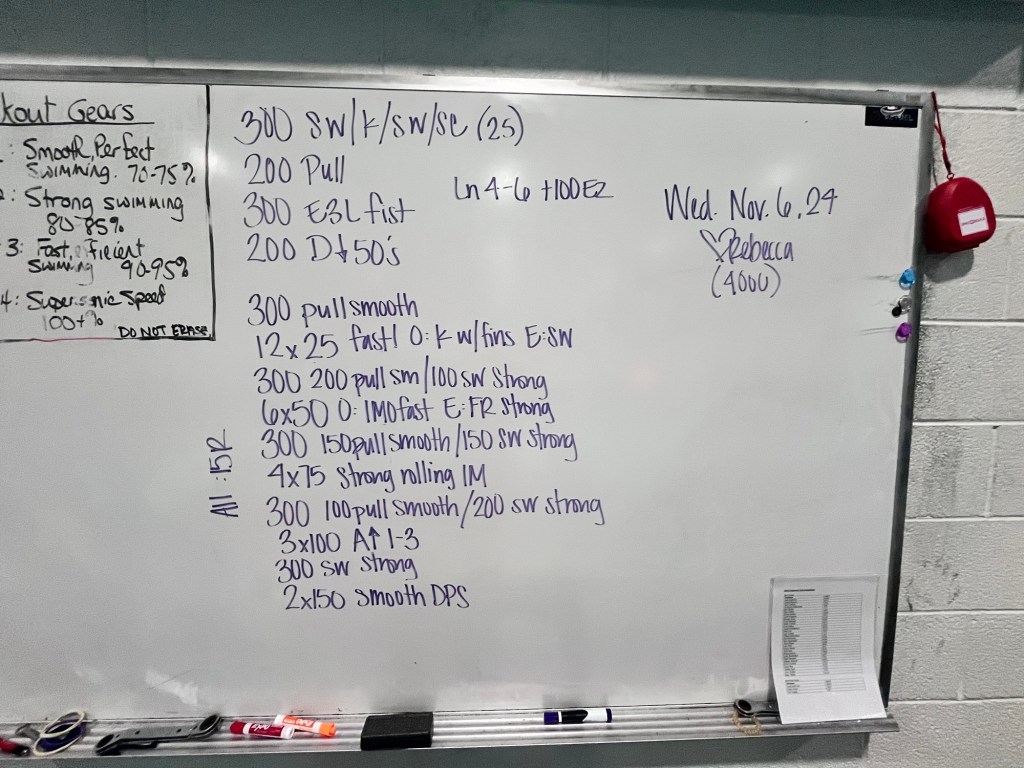 kout Gears
: Smooth, Perfect
Swimming. 70-75%
2: Strong swimming
80-85%
3: Fast, efficient
swimming 90-95%
4: Supersonic Speed
100+%
DO NOT ERASE
300 SW/K/SW/SC (25)
200 Pull
Ln 4-6 +100EZ
300 E3L fist
200 D↓50's
Wed. Nov. 6, 24
♡Rebecca
(4000)
300 pull smooth
12x25 fast! O: K w/fins E: SW
300 200 pull sm/100 SW Strong
6x50 O: IMO fast E: FR Strong
300 150 pull smooth/150 SW strong
4x75 Strong rolling IM
300 100 pull smooth/200 sw strong
3x100 A↑ 1-3
300 SW Strong
2x150 Smooth DPS
All :15R
EXPO
EXPO